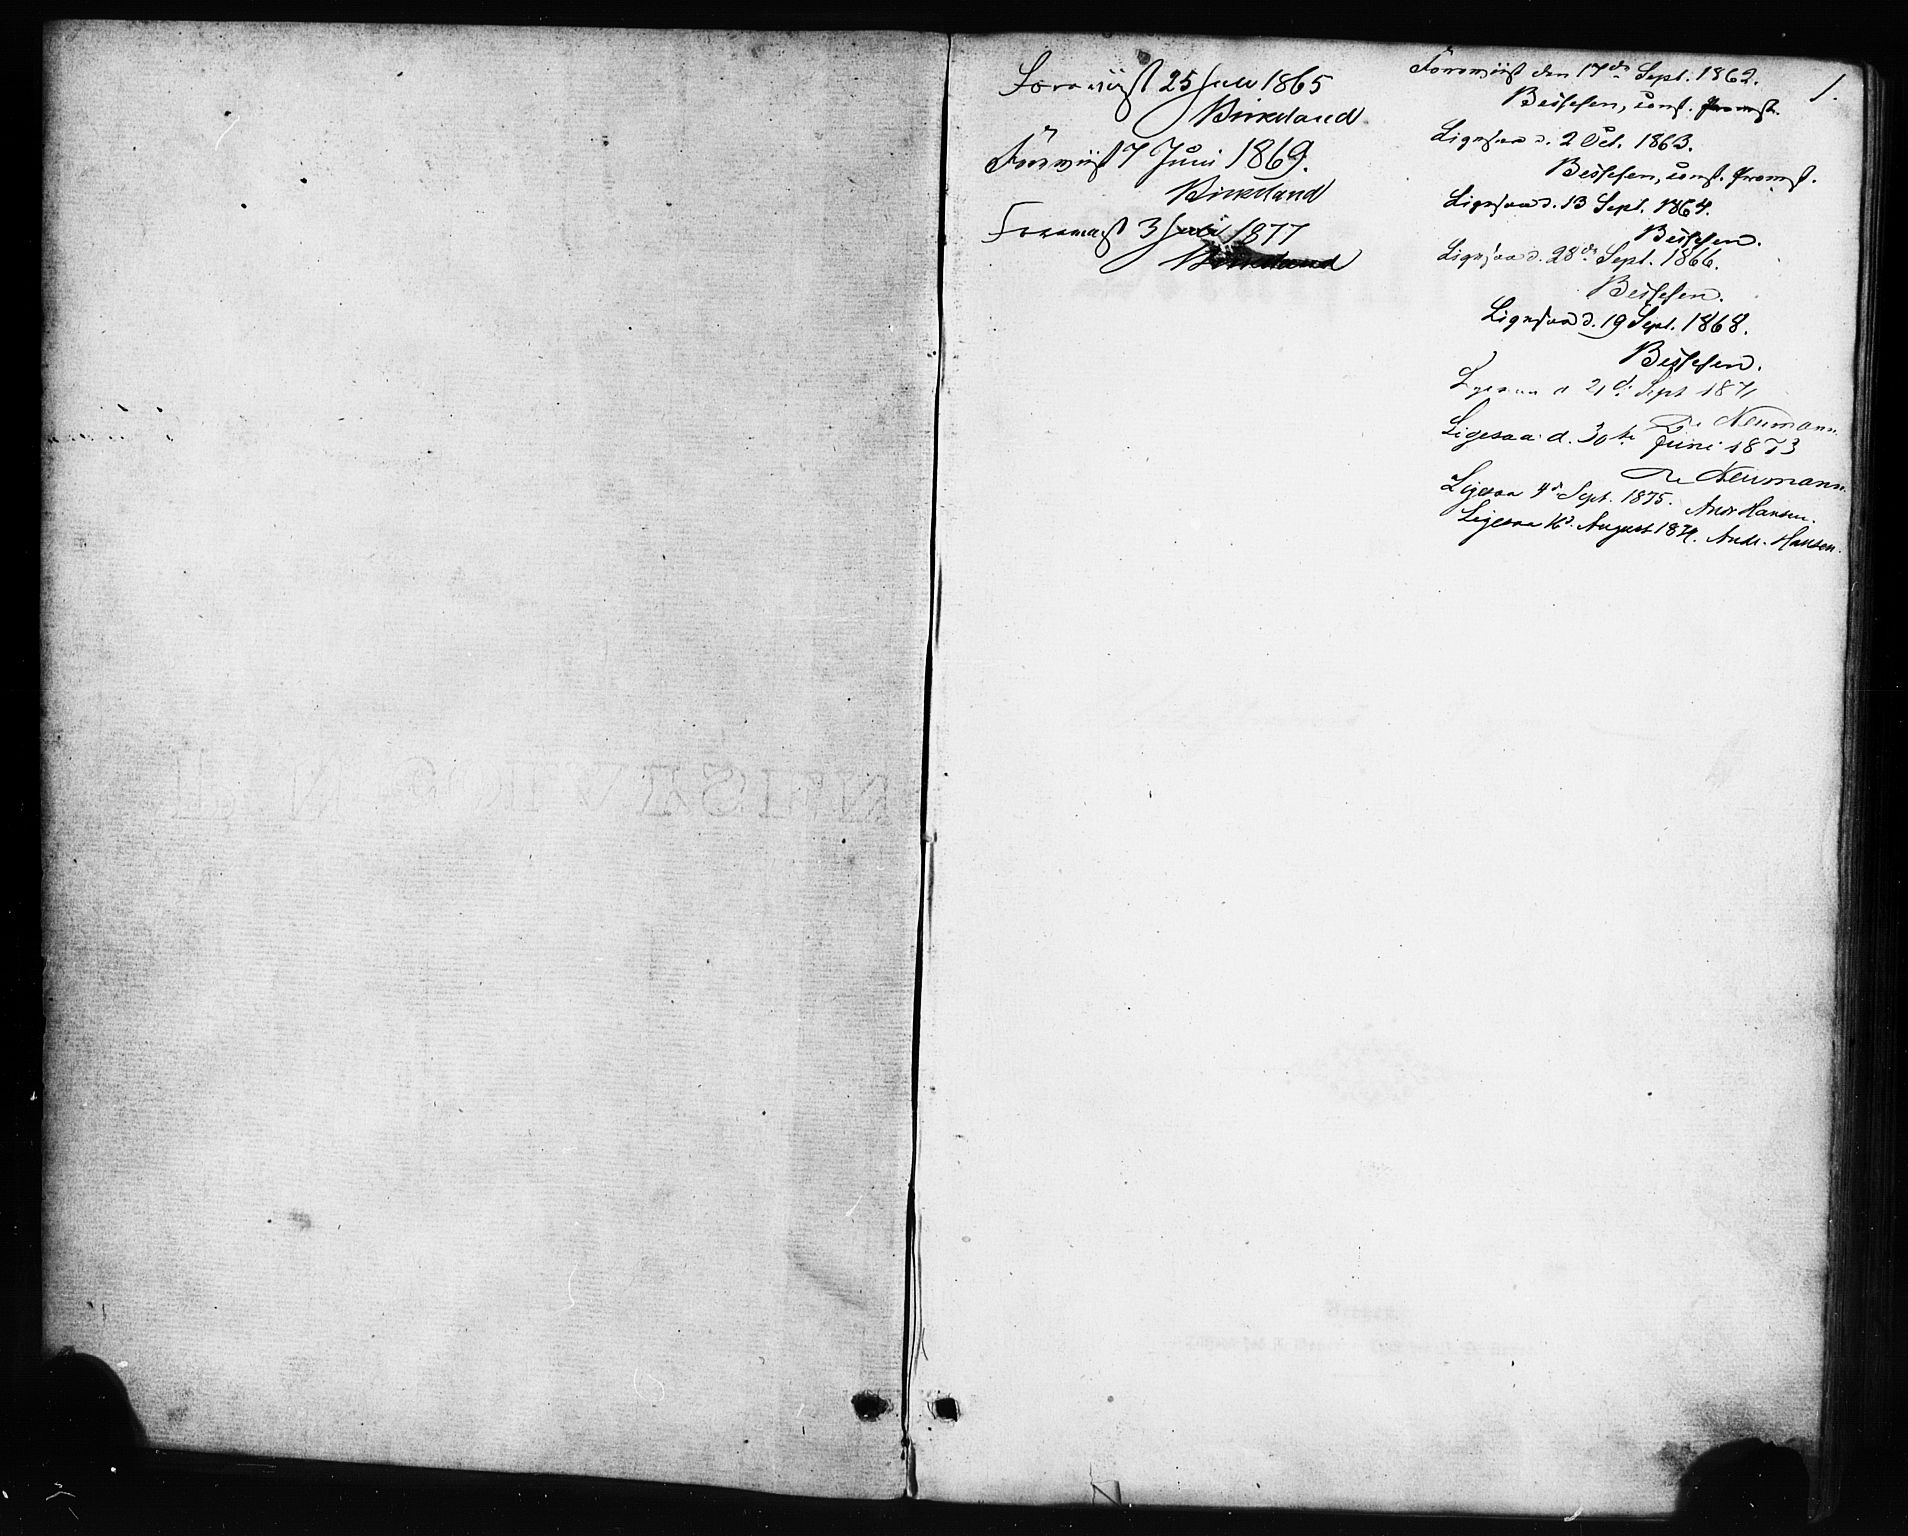 Foreviist 25 Juli 1865
Birkeland
Foreviist 7 Juni 1869.
Birkeland
Foreviist 3 Juli 1877
Birkeland
1.
Foreviist den 17de Sept. 1862.
const.
Ligesaa d. 2 Oct. 1863.
const.
Ligesaa d. 13 Sept. 1864.
Ligesaa d. 28de Sept. 1866.
Ligesaa d. 19 Sept. 1868.
Ligesaa d 21d. Sept 1871
Neumann.
Ligesaa d. 30te Juni 1873
Neumann.
Ligesaa 4d. Sept. 1875. Andr Hansen.
Ligesaa 16d. August Andr. Hansen.